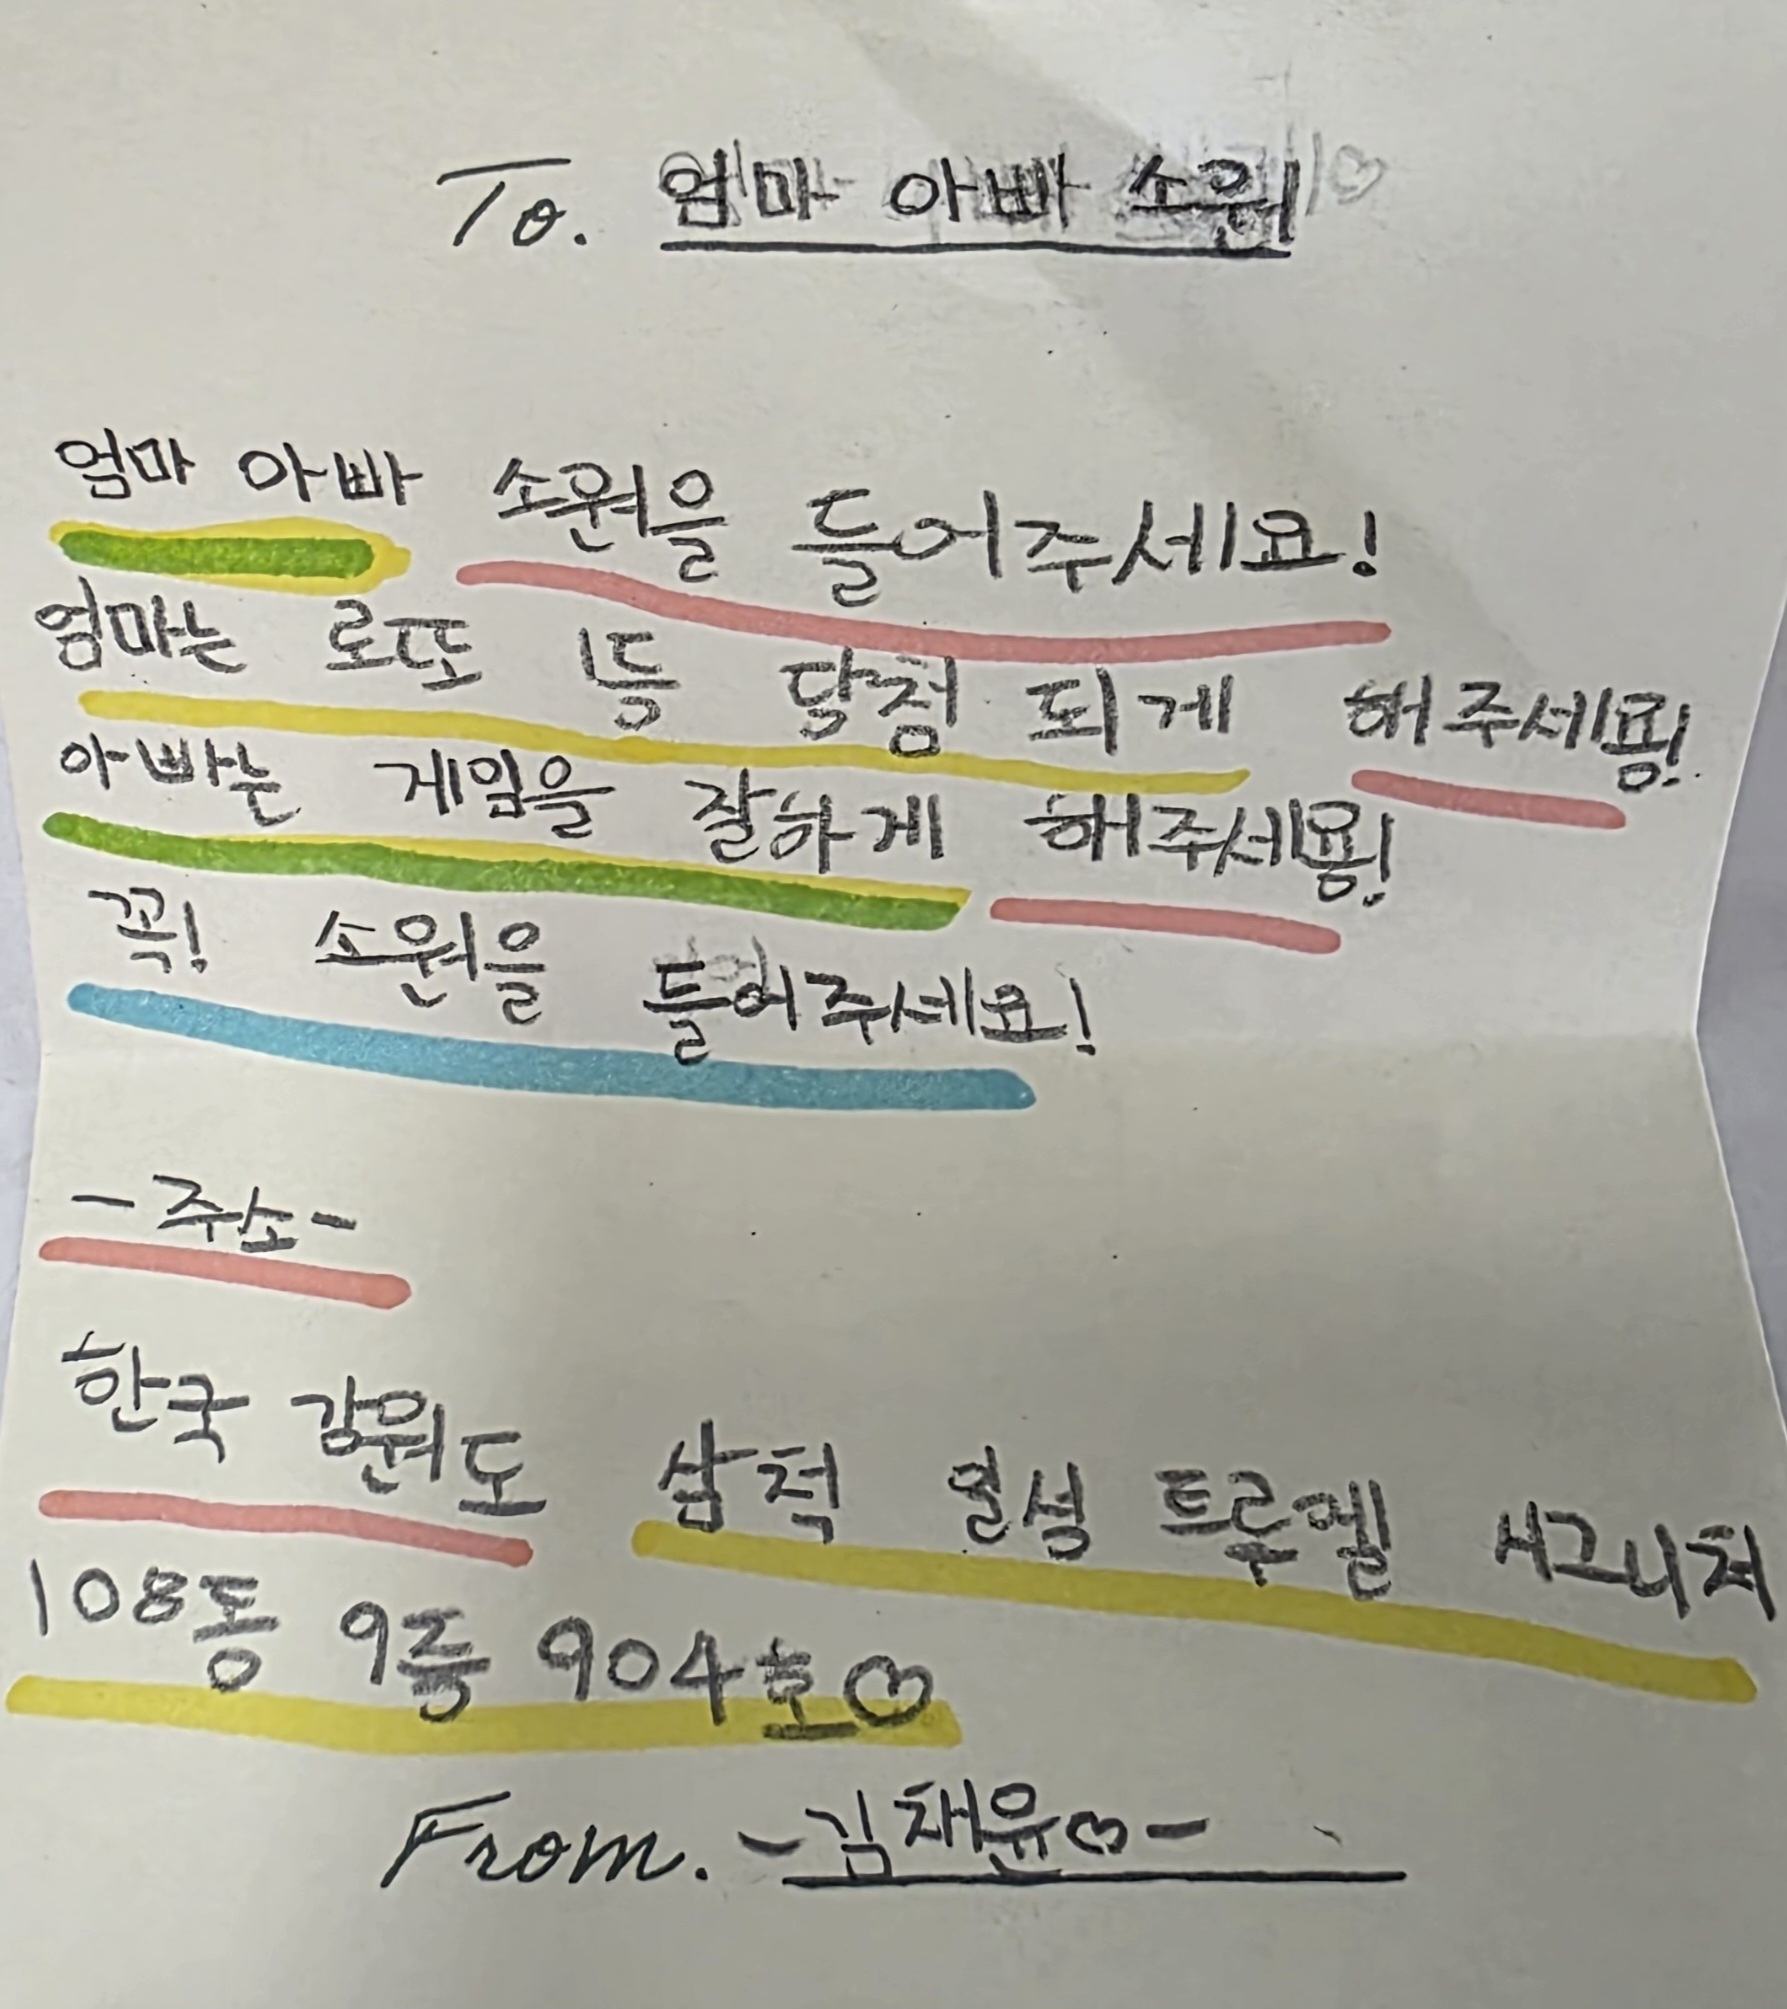 To. 엄마 아빠 소원♡
엄마 아빠 소원을 들어주세요!
엄마는 로또 1등 당첨 되게 해주세용!
아빠는 게임을 잘하게 해주세용!
꼭! 소원을 들어주세요!
-주소-
한국 강원도 삼척 현성 트루엘 시그니처
108동 9층 904호♡
From. -김채윤♡-